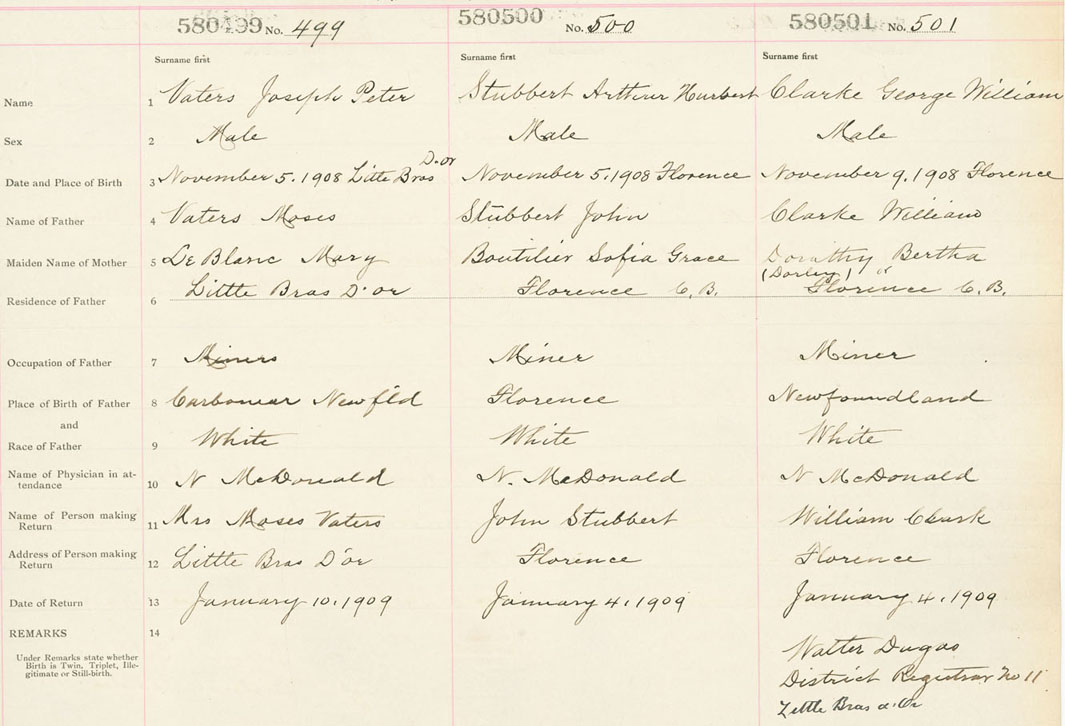 580499 No. 499 580500 No. 500 580501 No. 501
Surname first Surname first Surname first
Name 1 Vaters Joseph Peter Stubbert Arthur Hurbert Clarke George William
Sex 2 Male Male Male
Date and Place of Birth 3 November 5. 1908 Little Bras D.or November 5. 1908 Florence November 9. 1908 Florence
Name of Father 4 Vaters Moses Stubbert John Clarke William
Maiden Name of Mother 5 Le Blanc Mary Boutilier Sofia Grace Dorathy Bertha
(Dorley) or
Residence of Father 6 Little Bras D'or Florence C. B. Florence C. B.
Occupation of Father 7 Miners Miner Miner
Place of Birth of Father 8 Carbonear Newfld Florence Newfoundland
and
Race of Father 9 White White White
Name of Physician in at-
tendance 10 N McDonald N. McDonald N McDonald
Name of Person making
Return 11 Mrs Moses Vaters John Stubbert William Clark
Address of Person making
Return 12 Little Bras D'or Florence Florence
Date of Return 13 January 10. 1909 January 4. 1909 January 4. 1909
REMARKS 14
Under Remarks state whether
Birth is Twin, Triplet, Ille-
gitimate or Still-birth.
Walter Dugas
District Registrar No 11
Little Bras d'Or